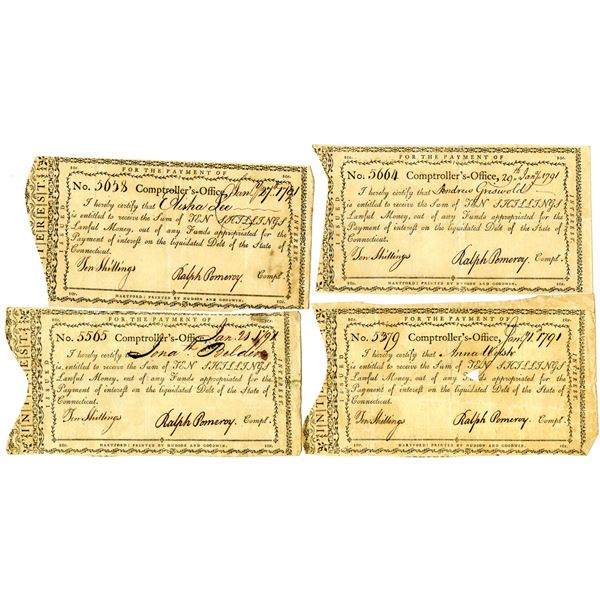 FOR THE PAYMENT OF
10s. 10s.
No. 5658 Comptroller's-Office, Jany 27th 1791
I hereby certify that Elisha Lee
is entitled to receive the Sum of TEN SHILLINGS
Lawful Money, out of any Funds appropriated for the
Payment of interest on the liquidated Debt of the State of
Connecticut.
Ten Shillings Ralph Pomeroy. Compt.
10s. 10s.
HARTFORD: PRINTED BY HUDSON AND GOODWIN.
INTEREST
INTEREST
FOR THE PAYMENT OF
10s. 10s.
No. 5664 Comptroller's-Office, 29th Jany 1791
I hereby certify that Andrew Griswold
is entitled to receive the Sum of TEN SHILLINGS
Lawful Money, out of any Funds appropriated for the
Payment of interest on the liquidated Debt of the State of
Connecticut.
Ten Shillings Ralph Pomeroy. Compt.
10s. 10s.
HARTFORD: PRINTED BY HUDSON AND GOODWIN.
INTEREST
No. 5565 Comptroller's-Office, Jan 21 1791
I hereby certify that Jona Belding
is entitled to receive the Sum of TEN SHILLINGS
Lawful Money, out of any Funds appropriated for the
Payment of interest on the liquidated Debt of the State of
Connecticut.
Ten Shillings Ralph Pomeroy. Compt.
10s. 10s.
HARTFORD: PRINTED BY HUDSON AND GOODWIN.
FOR THE PAYMENT OF
10s. 10s.
No. 5379 Comptroller's-Office, Jany 1. 1791
I hereby certify that Anna Welsh
is entitled to receive the Sum of TEN SHILLINGS
Lawful Money, out of any Funds appropriated for the
Payment of interest on the liquidated Debt of the State of
Connecticut.
Ten Shillings Ralph Pomeroy. Compt.
10s. 10s.
HARTFORD: PRINTED BY HUDSON AND GOODWIN.
INTEREST